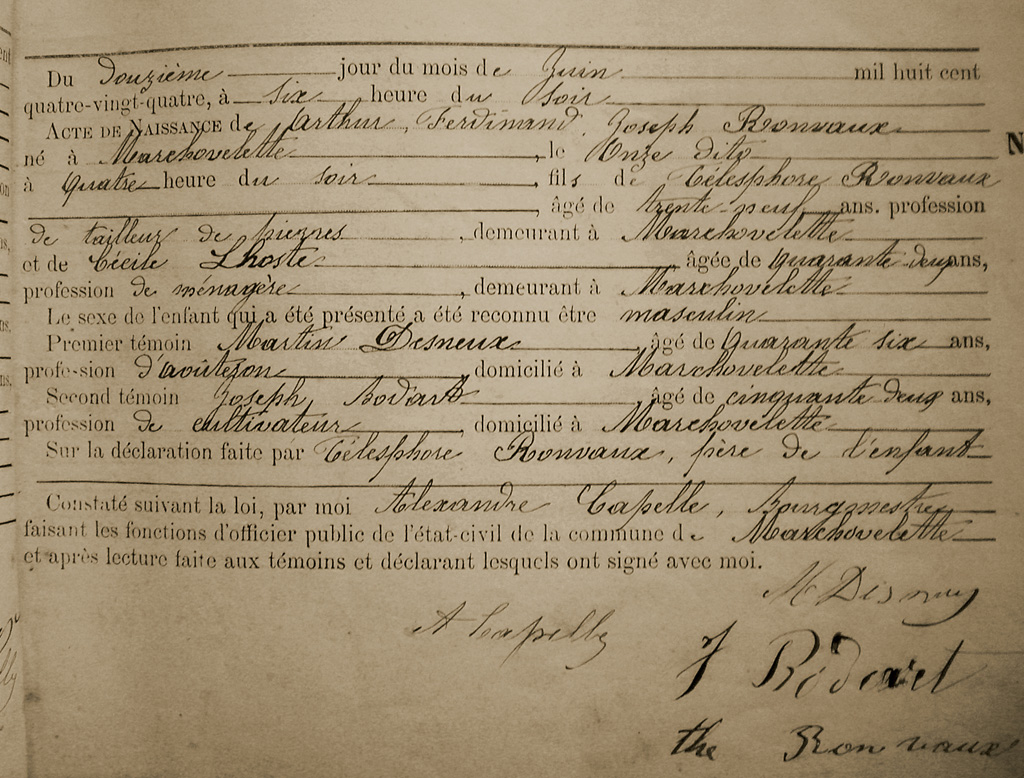 Du Douzième jour du mois de Juin mil huit cent
quatre-vingt-quatre, à six heure du soir
ACTE DE NAISSANCE de Arthur, Ferdinand, Joseph Ronvaux
né à Marchovelette, le Onze dito
à quatre heure du soir, fils de Télesphore Ronvaux
, âgé de trente-neuf ans. profession
de tailleur de pierres, demeurant à Marchovelette
et de Cécile Lhoste, âgée de quarante deux ans,
profession de ménagère, demeurant à Marchovelette
Le sexe de l'enfant qui a été présenté a été reconnu être masculin
Premier témoin Martin Desneux, âgé de Quarante six ans,
profession d'aoûteron, domicilié à Marchovelette
Second témoin Joseph Bodart, âgé de cinquante deux ans,
profession de cultivateur, domicilié à Marchovelette
Sur la déclaration faite par Télesphore Ronvaux, père de l'enfant
Constaté suivant la loi, par moi Alexandre Capelle, Bourgmestre
faisant les fonctions d'officier public de l'état-civil de la commune de Marchovelette
et après lecture faite aux témoins et déclarant lesquels ont signé avec moi.
M Disneux
A Capelle
J Bodart
the Ronvaux
N